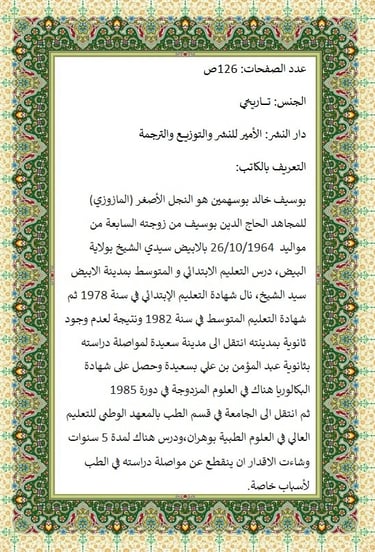 عدد الصفحات: 126ص
الجنس: تـاريخي
دار النشر: الأمير للنشر والتوزيع والترجمة
التعريف بالكاتب:
بوسيف خالد بوسهمين هو النجل الأصغر (المازوزي)
للمجاهد الحاج الدين بوسيف من زوجته السابعة من
مواليد 26/10/1964 بالابيض سيدي الشيخ بولاية
البيض، درس التعليم الابتدائي و المتوسط بمدينة الابيض
سيد الشيخ، نال شهادة التعليم الإبتدائي في سنة 1978 ثم
شهادة التعليم المتوسط في سنة 1982 ونتيجة لعدم وجود
ثانوية بمدينته انتقل الى مدينة سعيدة لمواصلة دراسته
بثانوية عبد المؤمن بن علي بسعيدة وحصل على شهادة
البكالوريا هناك في العلوم المزدوجة في دورة 1985
ثم انتقل الى الجامعة في قسم الطب بالمعهد الوطني للتعليم
العالي في العلوم الطبية بوهران،ودرس هناك لمدة 5 سنوات
وشاءت الاقدار ان ينقطع عن مواصلة دراسته في الطب
لأسباب خاصة.